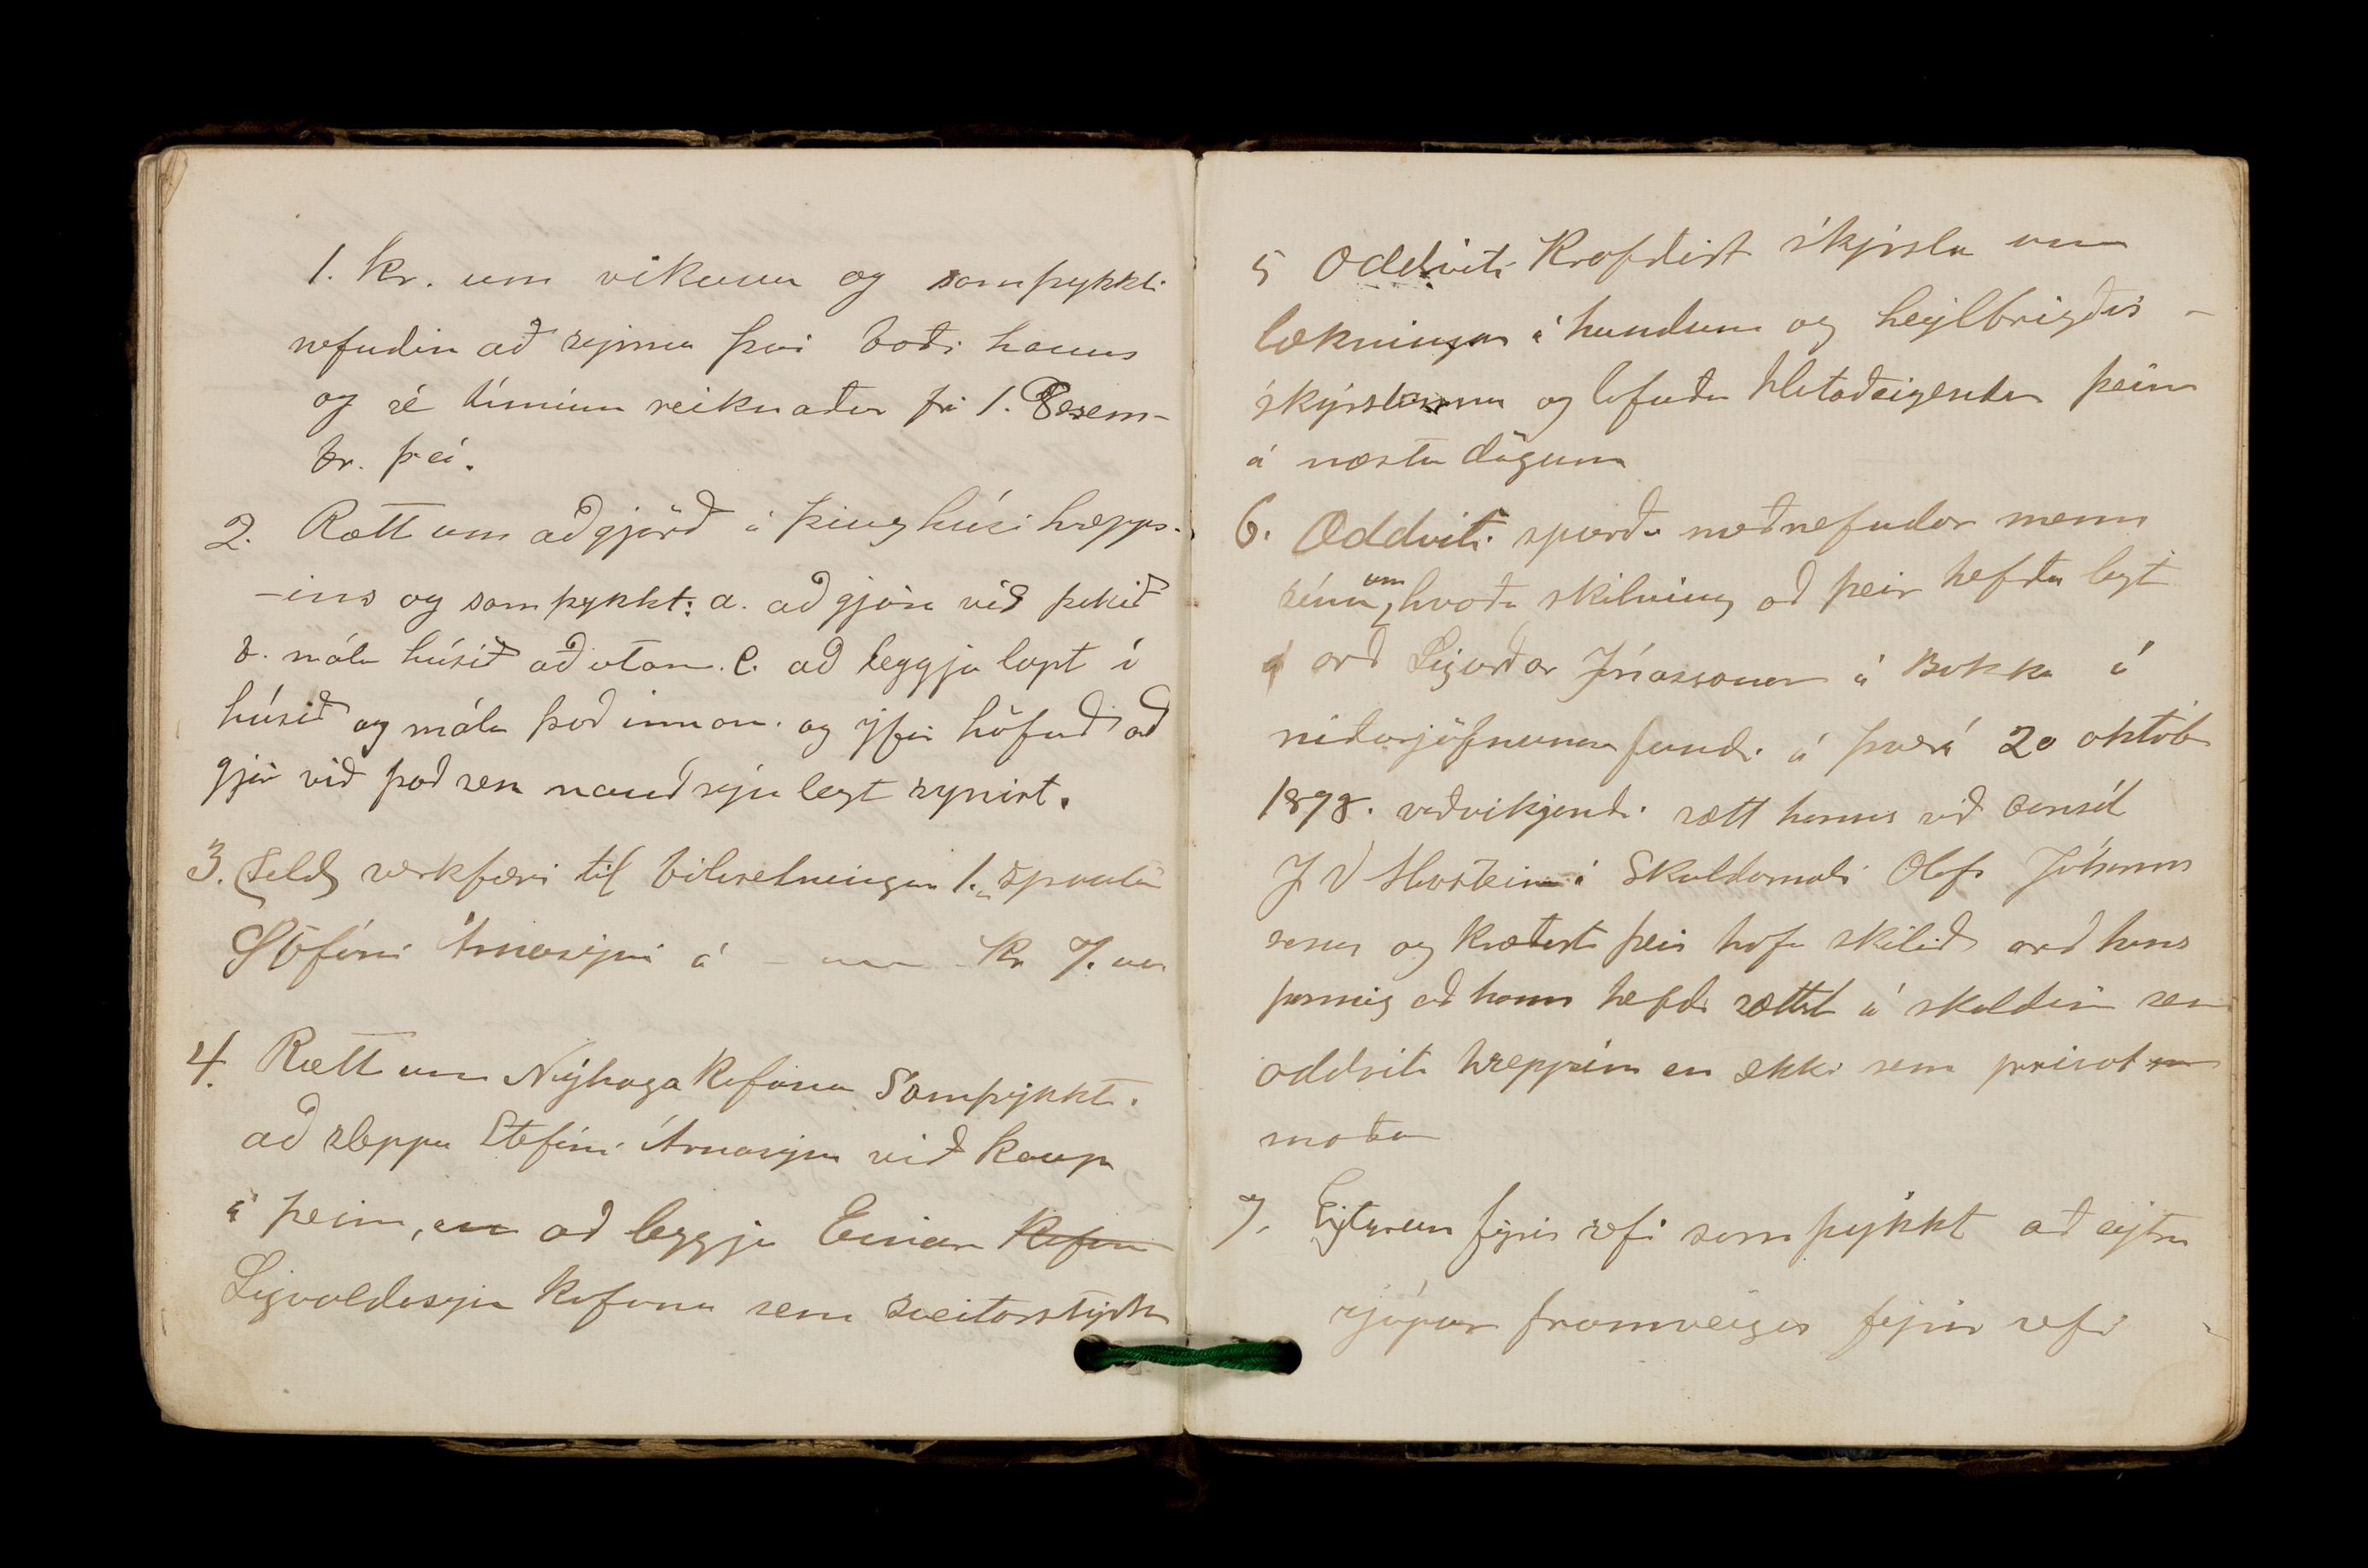 1. kr. um vikuna og samþykkti
nefndin að sinna því boði hanns
og sé tíminn reiknaður frá 1. Desem-
br. þ á.
2. Rætt um aðgjörð á þinghúsi hrepps-
-ins og samþykkt: a. að gjöra við þekið
b. mála húsið að utan. c. að leggja lopt í
húsið og mála það innan. og yfir höfuð að
gjöra við það sem nauðsynlegt synist.
3. Seld verkfæri til
Stefáni Árnasyni á kr
4. Rætt um Nýhaga kofana Samþykkt.
að sleppa Stefáni Árnasyni við kaup
á þeim, en að leggja Einari kofa
Sigvaldasyni kofana sem sveitarstyrk
5 Oddviti krafðist skýrslu um
lækningar á hundum og heylbrigðis -
skýrslunna og lofuðu hlutaðeigendur þeim
á næstu dögum
6. Oddviti spurði meðnefndar menn
sína, um hvaða skilning að þeir hefðu lagt
í orð Sigurðar Jónassonar á Bakka á
niðurjöfnunar fundi á þverá 20 októb
1898. viðvíkjandi sætt hanns við consúl
J V Havsteen í Skuldamáli Olafs Jóhanns
sonar og kváðust þeir hafa skilið orð hans
þannig að hann hefði sættst á skuldina sem
oddviti hreppsins en ekki sem privat m
maður
7. Eytrun fyrir refi samþykkt að eytra
rjúpur framveigis fyrir refi